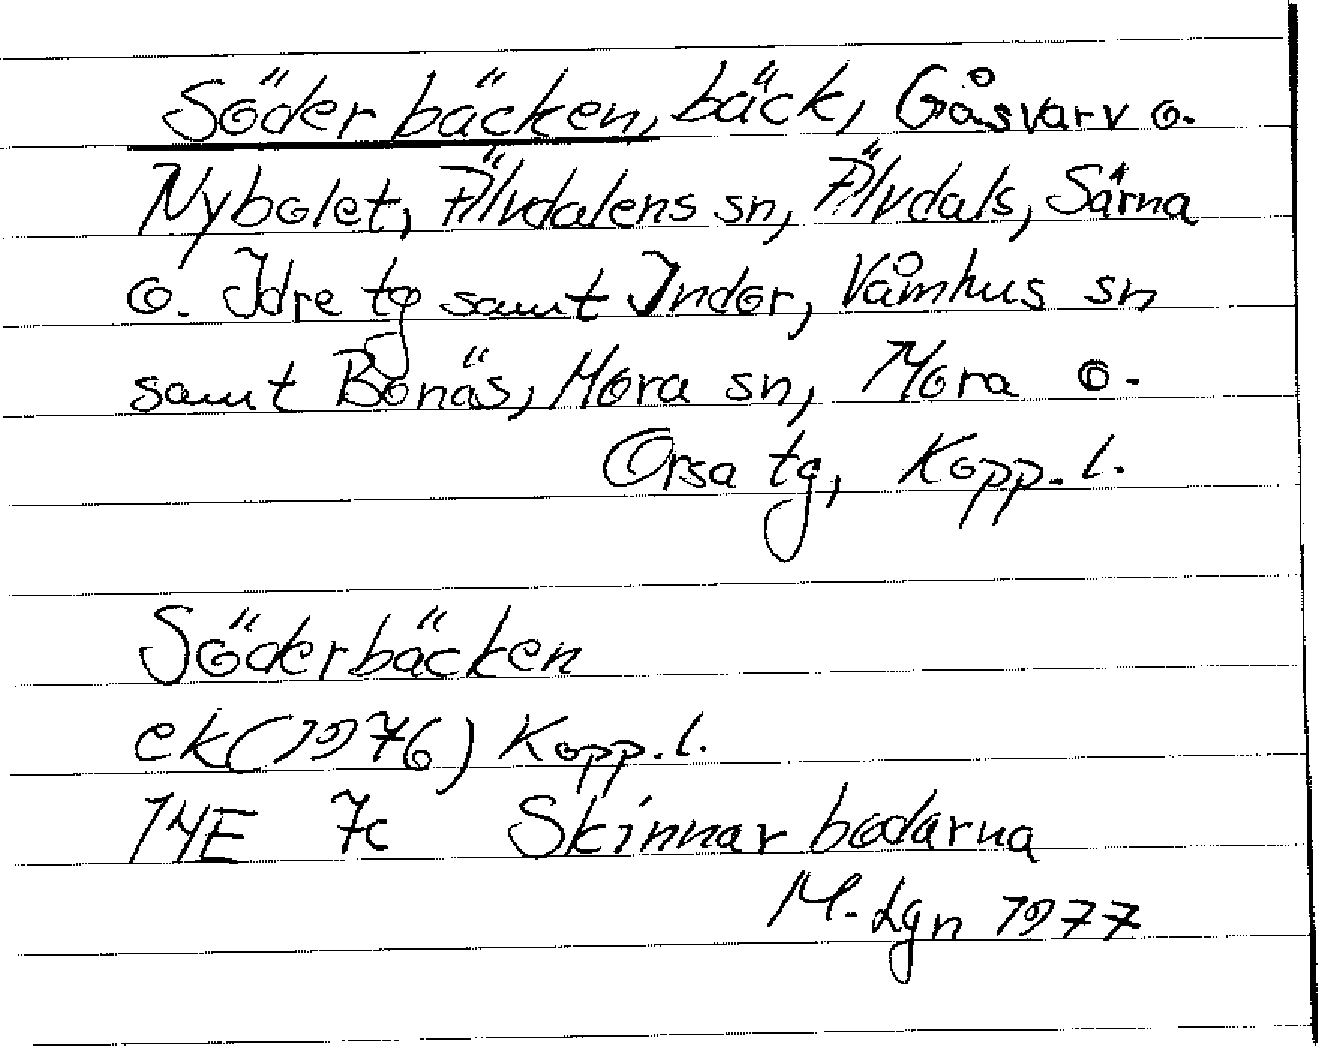 Söderbäcken, bäck, Gåsvarv o.
Nybolet, Älvdalens sn, Älvdals, Särna
o. Idre tg samt Indor, Våmhus sn
samt Bonäs, Mora sn, Mora o.
Orsa tg, Kopp. l.
Söderbäcken
ek (1976) Kopp. l.
14E 7c Skinnarbodarna
M. Lgn 1977